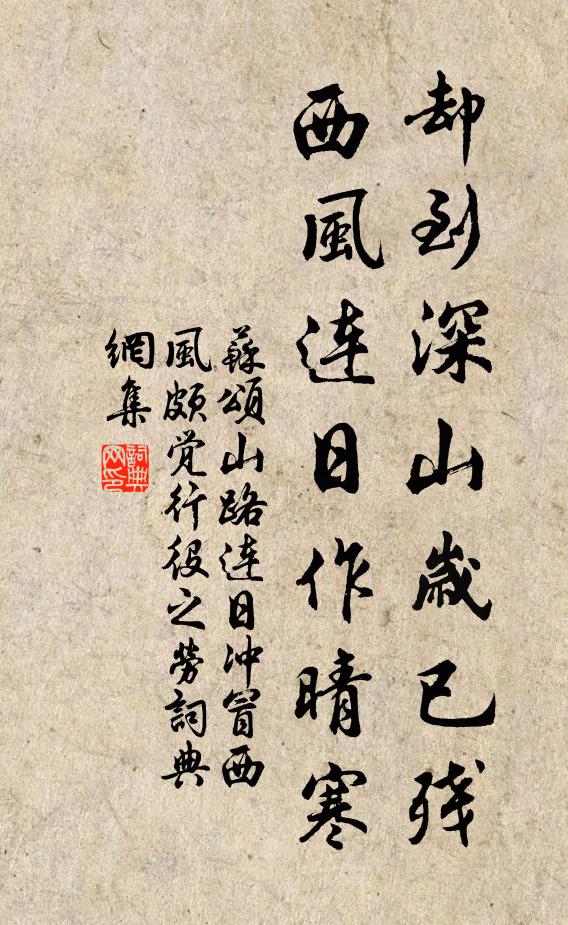 却到深山嵗已残
西風連日作晴寒
蘇頌山路连日冲冒西
風頗觉行役之勞詞典
網集
詞典
网印